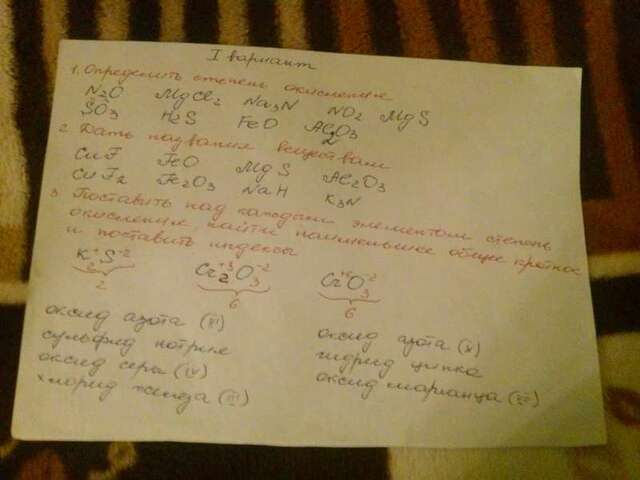 I вариант
1. Определить степень окисления
N2O MgCl2 Na3N NO2 MgS
SO3 H2S FeO Al2O3
2. Дать названия веществам
CuF FeO MgS Al2O3
CuF2 Fe2O3 NaH K3N
3. Поставить над каждым элементом степень
окисления, найти наименьшее общее кратное
и поставить индексы
K+ S-2 Cr2+3O3-2 Cr+6O3-2
2 6 6
оксид азота (III) оксид азота (V)
сульфид натрия гидрид цинка
оксид серы (IV) оксид марганца (VII)
хлорид железа (III)